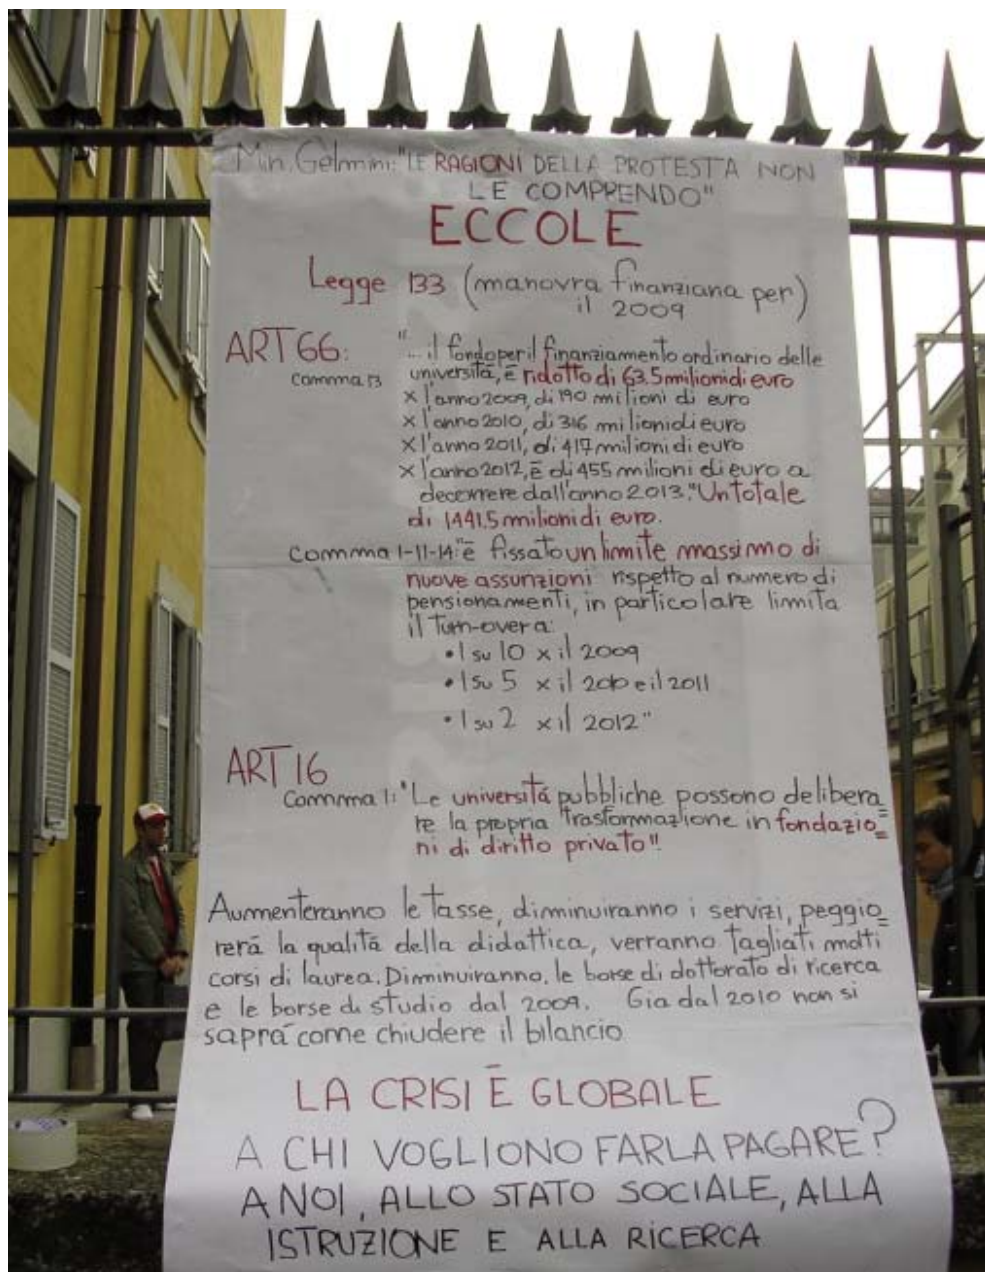 Min. Gelmini: "LE RAGIONI DELLA PROTESTA NON
LE COMPRENDO"
ECCOLE
Legge 133 (manovra finanziaria per)
il 2009
ART 66:
comma 13
"... il fondo per il finanziamento ordinario delle
università, è ridotto di 63.5 milioni di euro
x l'anno 2009, di 190 milioni di euro
x l'anno 2010, di 316 milioni di euro
x l'anno 2011, di 417 milioni di euro
x l'anno 2012, è di 455 milioni di euro a
decorrere dall'anno 2013." Un totale
di 1441.5 milioni di euro.
comma 1-11-14: "è fissato un limite massimo di
nuove assunzioni rispetto al numero di
pensionamenti, in particolare limita
il turn-over a:
• 1 su 10 x il 2009
• 1 su 5 x il 2010 e il 2011
• 1 su 2 x il 2012"
ART 16
Comma 1: "Le università pubbliche possono delibera=
re la propria trasformazione in fondazio=
ni di diritto privato".
Aumenteranno le tasse, diminuiranno i servizi, peggio=
rerà la qualità della didattica, verranno tagliati molti
corsi di laurea. Diminuiranno, le borse di dottorato di ricerca
e le borse di studio dal 2009. Gia dal 2010 non si
saprà come chiudere il bilancio
LA CRISI È GLOBALE
A CHI VOGLIONO FARLA PAGARE?
A NOI, ALLO STATO SOCIALE, ALLA
ISTRUZIONE E ALLA RICERCA